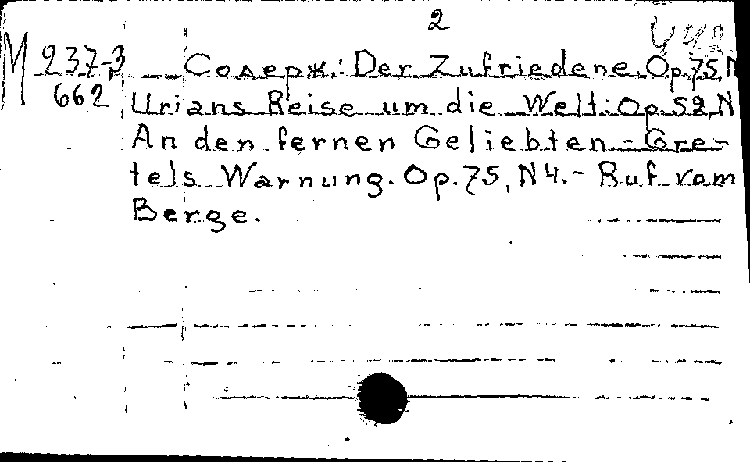 2
М 237-3 Содерж.: Der Zufriedene. Op. 75, N
662 Urians Reise um die Welt. Op. 52, N
An den fernen Geliebten - Gre-
tels Warnung. Op. 75, N 4. - Ruf vom
Berge.